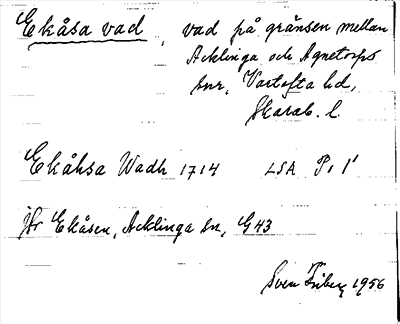 Ekåsa vad, vad på gränsen mellan
Acklinga och Agnetorps
snr, Vartofta hd,
Skarab. l.
Ekåhsa Wadh 1714 LSA P. 1¹
Jfr Ekåsen, Acklinga sn, G43
Sven Friberg 1956